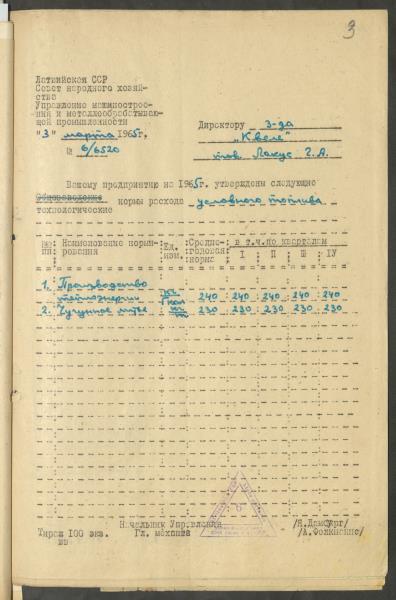 3
Латвийская ССР
Совет народного хозяй-
ства
Управление машинострое-
ния и металлообрабатываю-
щей промышленности
"3" марта 1965г.
№ 6/6520
Директору з-да
"Квеле"
тов. Лакус Г.А.
Вашему предприятию на 1965г. утверждены следующие
нормы расхода условного топлива
технологические
№№ пп: Наименование норми- рования Ед. изм. Средне- годовая норма в т.ч.по кварталам
I П Ш IУ
1. Производство
теплоэнергии кг Гкал 240 240 240 240 240
2. Чугунное литье 230 230 230 230 230
Начальник Управления
Гл. механик
Тираж 100 экз.